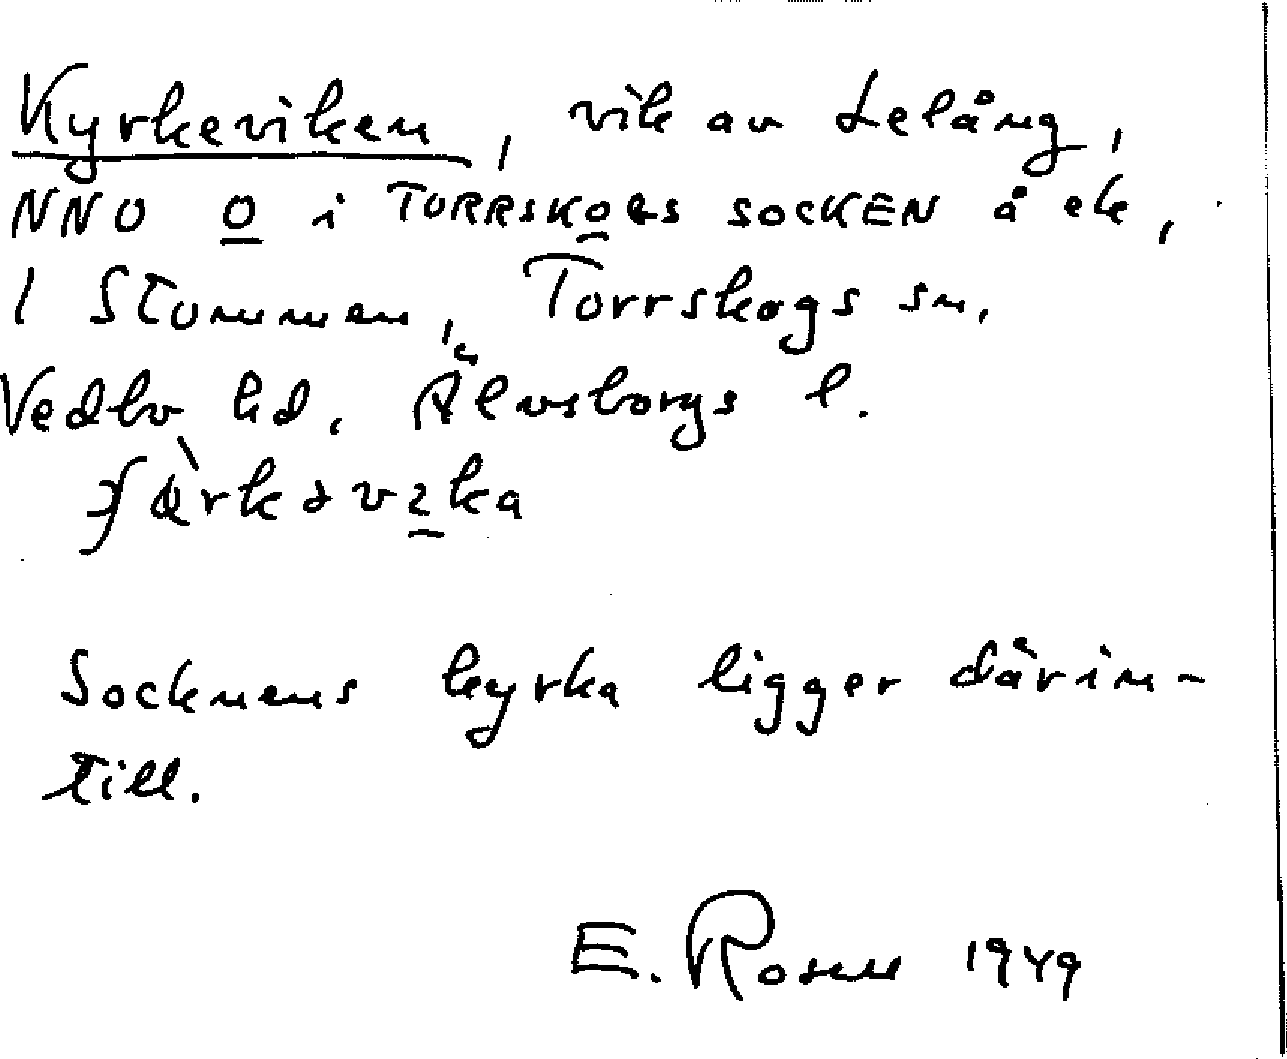 Kyrkeviken, vik av Lelång,
NNO O i TORRSKOGS SOCKEN å ek,
i Stommen, Torrskogs sn.
Vedbo hd. Älvsborgs l.
Socknens kyrka ligger därin-
till.
E. Rosell 1949